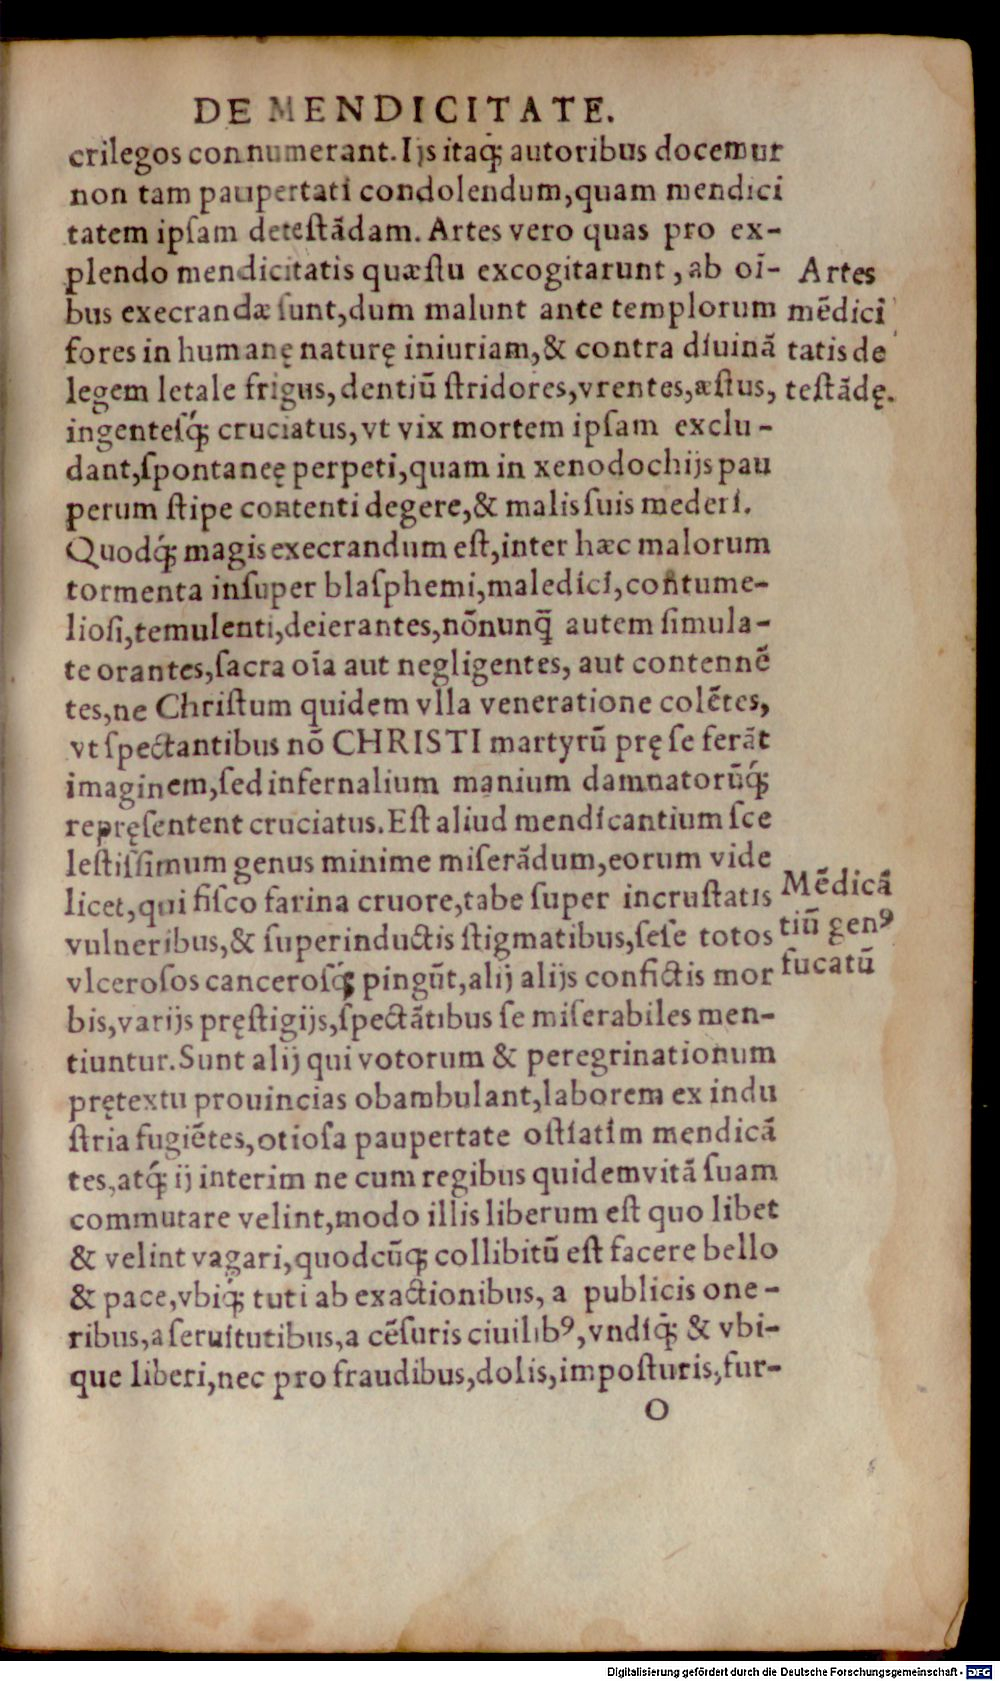 DE MENDICITATE.
crilegos connumerant. Ijs itaq́; autoribus docemur
non tam paupertati condolendum, quam mendici
tatem ipſam deteſtãdam. Artes vero quas pro ex-
plendo mendicitatis quæſtu excogitarunt, ab oĩ-
bus execrandæ ſunt, dum malunt ante templorum
fores in humanę naturę iniuriam, & contra diuinã
legem letale frigus, dentiũ ſtridores, vrentes, æſtus,
ingenteſq́; cruciatus, vt vix mortem ipſam exclu-
dant, ſpontaneę perpeti, quam in xenodochijs pau
perum ſtipe contenti degere, & malis ſuis mederi.
Quodq́; magis execrandum eſt, inter hæc malorum
tormenta inſuper blaſphemi, maledici, contume-
lioſi, temulenti, deierantes, nõnunq̃ autem ſimula-
te orantes, ſacra oĩa aut negligentes, aut contennẽ
tes, ne Chriſtum quidem vlla veneratione colẽtes,
vt ſpectantibus nõ CHRISTI martyrũ pręſe ferãt
imaginem, ſed infernalium manium damnatorũq́;
repręſentent cruciatus. Eſt aliud mendicantium ſce
leſtiſſimum genus minime miſerãdum, eorum vide
licet, qui fiſco farina cruore, tabe ſuper incruſtatis
vulneribus, & ſuperinductis ſtigmatibus, ſeſe totos
vlceroſos canceroſq́; pingũt, alij alijs confictis mor
bis, varijs pręſtigijs, ſpectãtibus ſe miſerabiles men-
tiuntur. Sunt alij qui votorum & peregrinationum
prętextu prouincias obambulant, laborem ex indu
ſtria fugiẽtes, otioſa paupertate oſtiatim mendicã
tes, atq́; ij interim ne cum regibus quidem vitã ſuam
commutare velint, modo illis liberum eſt quo libet
& velint vagari, quodcũq; collibitũ eſt facere bello
& pace, vbiq́; tuti ab exactionibus, a publicis one-
ribus, a ſeruitutibus, a cẽſuris ciuilibꝰ, vndiq́; & vbi-
que liberi, nec pro fraudibus, dolis, impoſturis, fur-
O
Artes
mẽdici
tatis de
teſtãdę.
Mẽdicã
tiũ genꝰ
fucatũ
Digitalisierung gefördert durch die Deutsche Forschungsgemeinschaft - DFG